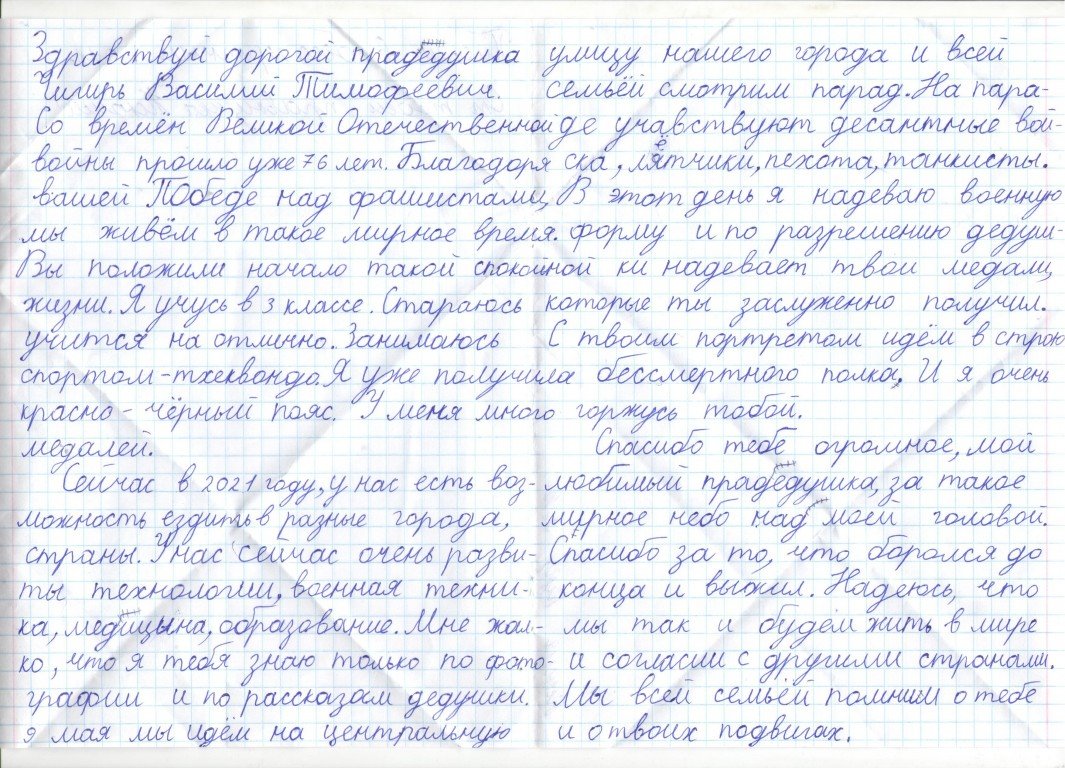 Здравствуй дорогой прадедушка
Чигирь Василий Тимофеевич.
Со времён Великой Отечественной
войны прошло уже 76 лет. Благодоря
вашей Победе над фашистами,
мы живём в такое мирное время.
Вы положили начало такой спокойной
жизни. Я учусь в 3 классе. Стараюсь
учится на отлично. Занимаюсь
спортом-тхеквондо. Я уже получила
красно-чёрный пояс. У меня много
медалей.
Сейчас в 2021 году, у нас есть воз-
можность ездить в разные города,
страны. У нас сейчас очень разви-
ты технологии, военная техни-
ка, медицына, образование. Мне жал-
ко, что я тебя знаю только по фото-
графии и по рассказам дедушки.
9 мая мы идём на центральную
улицу нашего города и всей
семьёй смотрим парад. На пара-
де учавствуют десантные вой-
ска, лётчики, пехота, танкисты.
В этот день я надеваю военную
форму и по разрешению дедуш-
ки надевает твои медали,
которые ты заслуженно получил.
С твоим портретом идём в строю
бессмертного полка. И я очень
горжусь тобой.
Спасибо тебе огромное, мой
любимый прадедушка, за такое
мирное небо над моей головой.
Спасибо за то, что боролся до
конца и выжил. Надеюсь, что
мы так и будем жить в мире
и согласии с другими странами.
Мы всей семьёй помним о тебе
и о твоих подвигах.